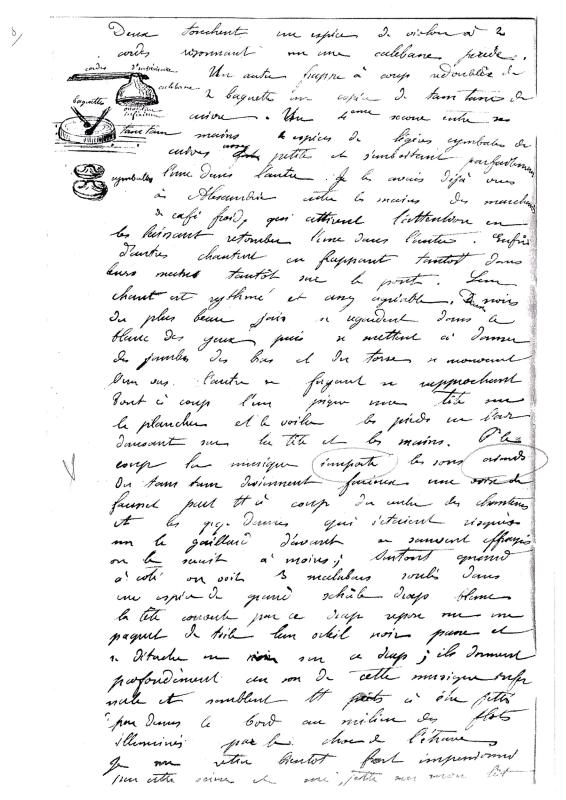 8/
Deux touchent une espèce de violon à 2
cordes résonnant sur une calebasse
cordes
calebasse
Un autre frappe à coup redoublés de
baguettes
2 baguette une espèce de tam tam de
cuivre. Un 4ème entre ses
tam tam
mains 2 espèces de légères cymbales de
cuivre petite et s'emboitant parfaitement
cymbales
l'une dans l'autre. Je les avais déjà vues
à Alexandrie entre les mains des marchands
de café froid, qui attirent l'attention en
les laissant retomber l'une dans l'autre. Enfin
d'autres chantent en frappant tantot dans
leurs mains tantôt sur le pont. Leur
chant est rythmé et assez agréable. Deux noirs
du plus beau jais se regardent dans le
blanc des yeux puis se mettent à donner
des jambes des bras et du torse se mouvant
l'un vers l'autre se fuyant se rapprochant
tout à coup l'un pique une tête sur
le plancher et le voilà les pieds en l'air
dansant sur la tête et les mains. Pr le
coup la musique importe les sons
du tam tam deviennent furieux une voix de
fausset part tt à coup du centre des chanteurs
et les qq. dames qui s'étaient risquées
sur le gaillard d'avant se sauvent effrayées
on le serait à moins ; surtout quand
à coté on voit 3 malabars roulés dans
une espèce de grand drap blanc
la tête couverte par ce drap repose sur un
paquet de toile leur noir passe et
se détache en noir sur ce drap ; ils dorment
profondément au son de cette musique
et semblent tt prêts à être jetés
par dessus le bord au milieu des flots
illuminés par le choc de l'étrave
Je me retire bientot fort impressionné
par cette scène et me jette sur mon lit